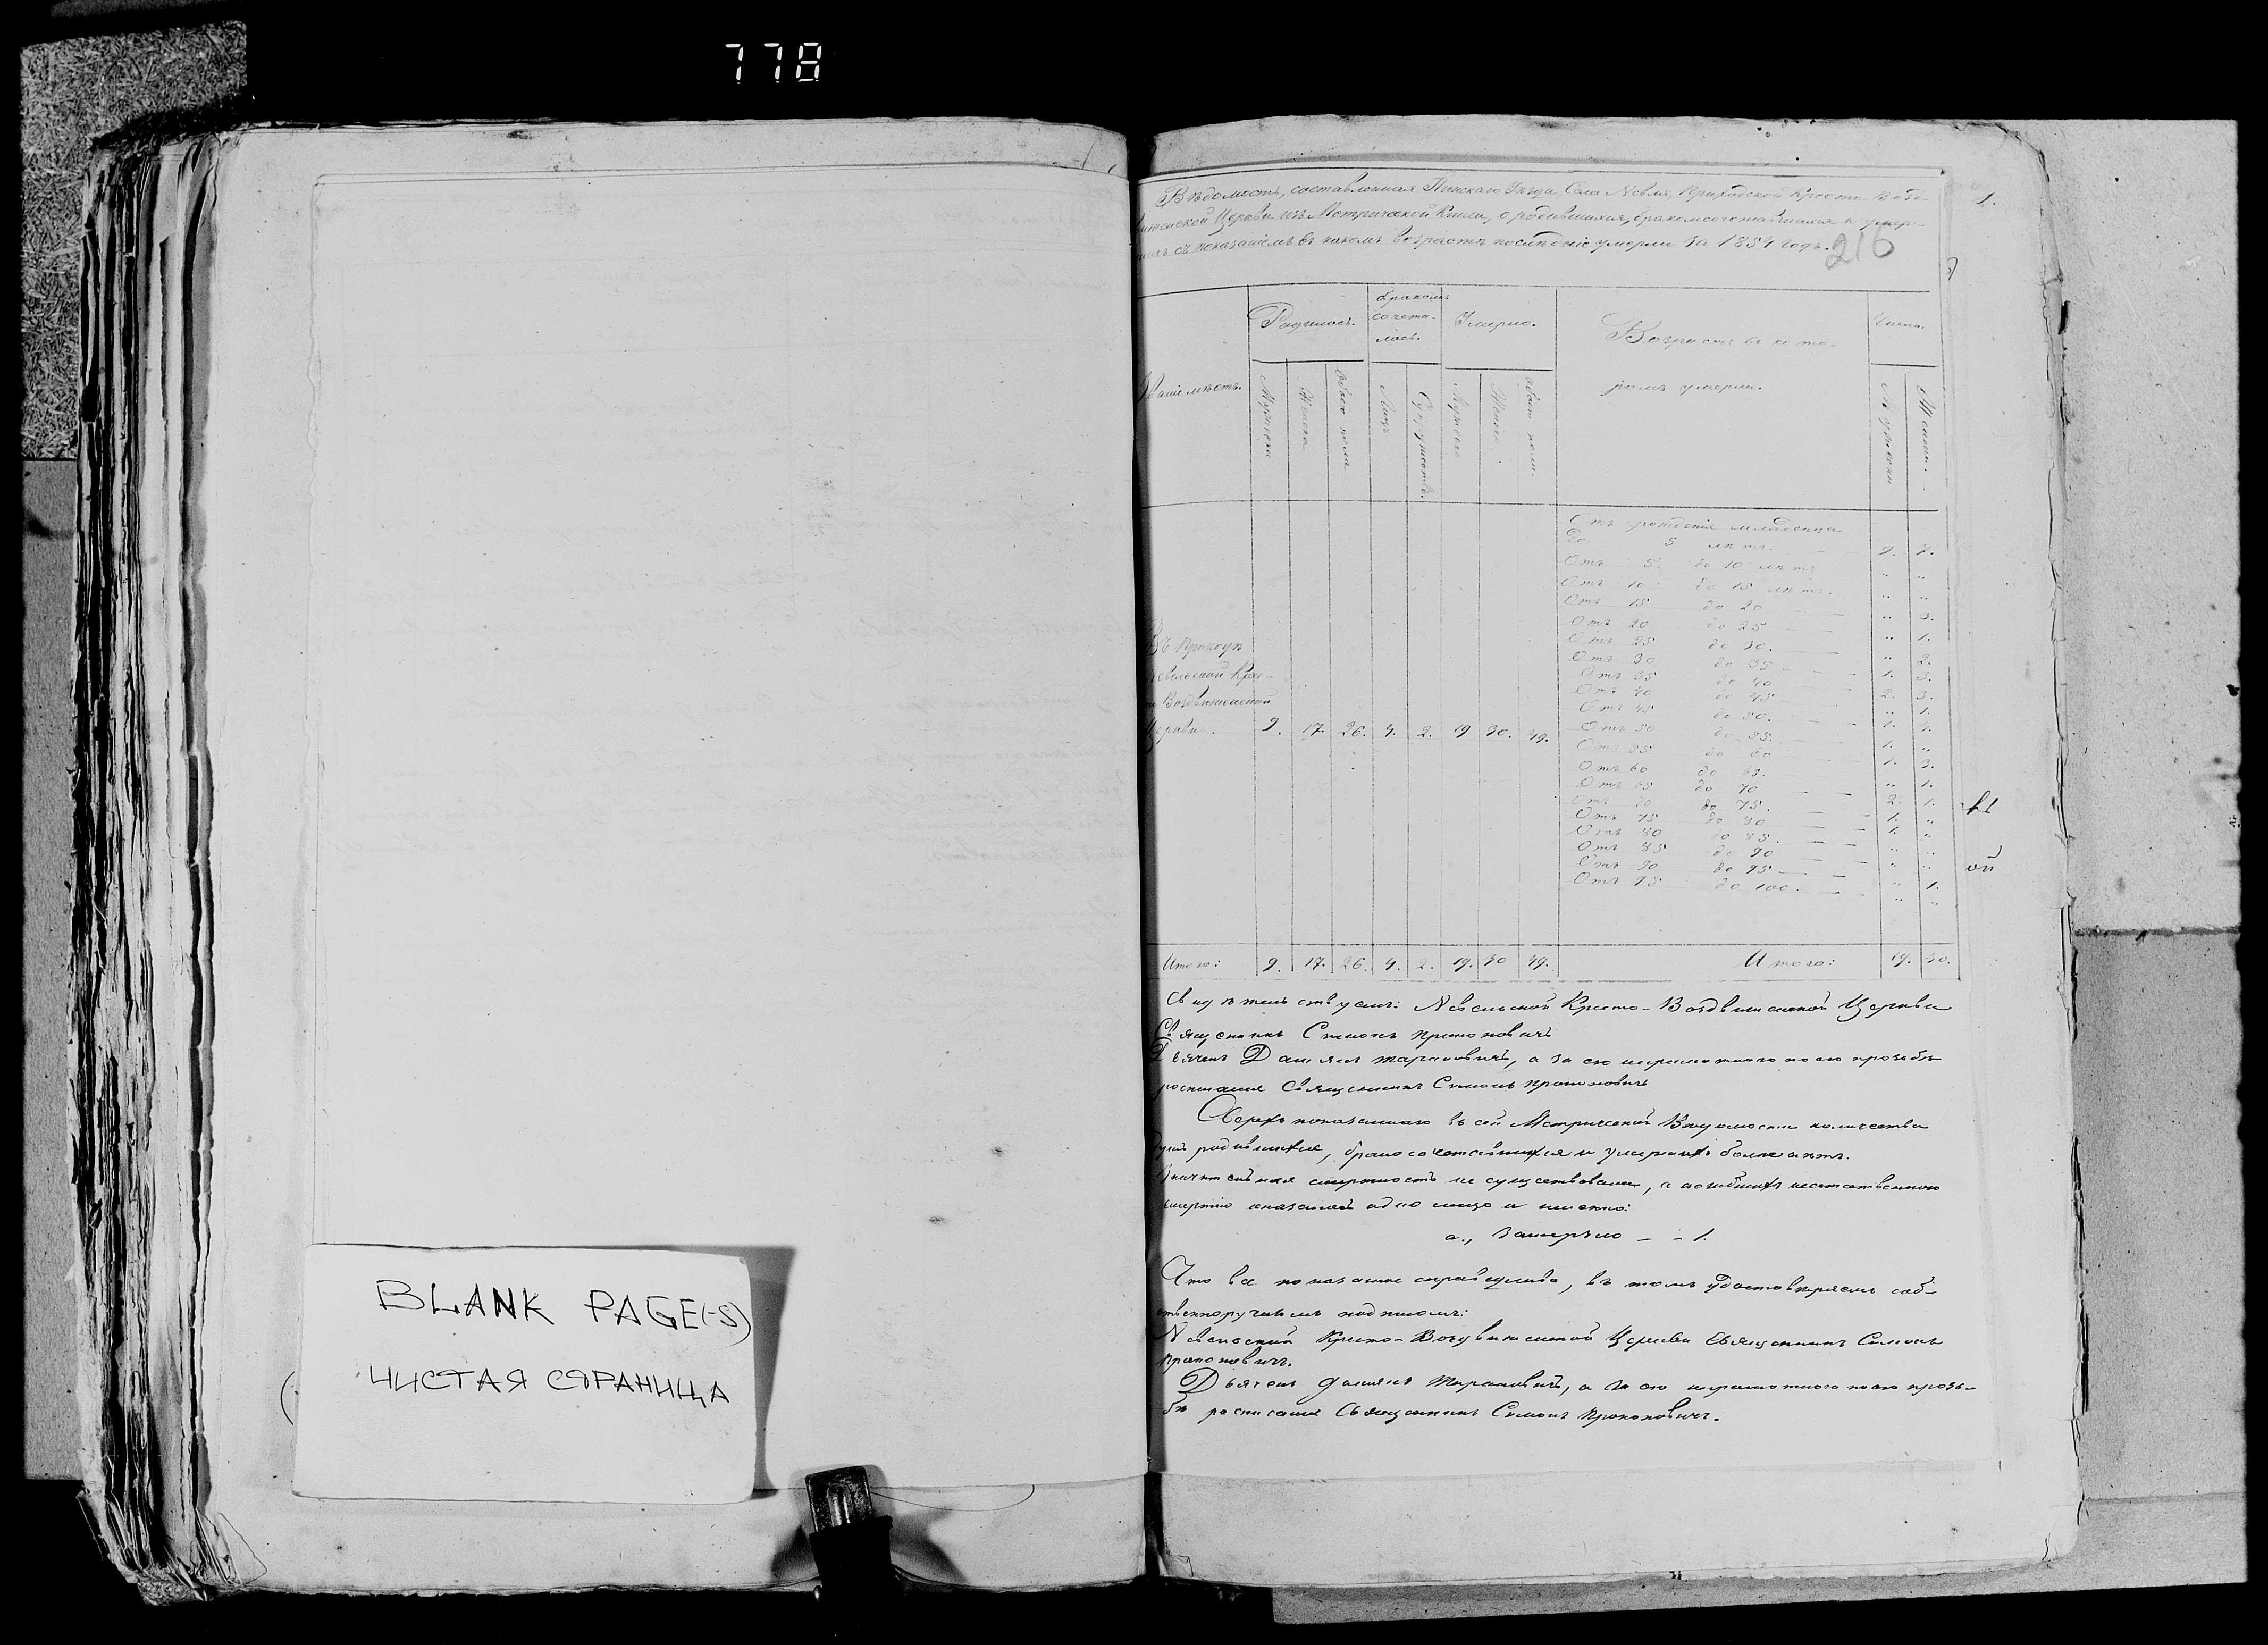 778
Вѣдомость, составленная Пинскаго Уѣзда, Села Невля, Приходской Кресто-Возд-
виженской Церкви изъ Метрической Книги, о родившихся, бракомсочетавшихся и умер-
шихъ съ показаніемъ въ какомъ возрастѣ послѣдніе умерли за 1854 годъ.
1.
216
Званіе мѣстъ.
Родилось.
бракомъ
сочета-
лось.
Умерло.
Возрастъ въ кото-
ромъ умерли.
Число.
Мужеска
Женска
Обоего пола
Лицъ
Супружествъ.
Мужска
Женска
обоего пола.
Мужеска
Женска.
Отъ рожденія младенца
до 5 лѣтъ. 9. 7.
Отъ 5 до 10 лѣтъ „ „
Отъ 10 до 15 лѣтъ. „ „
Отъ 15 до 20 „ 3.
Отъ 20 до 25 „ 1.
Отъ 25 до 30. „ 2.
Отъ 30 до 35 1. 3.
Отъ 35 до 40 2. 3.
Отъ 40 до 45 „ 1.
Отъ 45 до 50. 1. 4.
Отъ 50 до 55. 1. „
Отъ 55 до 60 1. 3.
Отъ 60 до 65. „ 1.
Отъ 65 до 70 2. 1.
Отъ 70 до 75. 1. „
Отъ 75 до 80 1. „
Отъ 80 до 85. „ „
Отъ 85 до 90 „ „
Отъ 90 до 95 „ 1.
Отъ 95 до 100. „ „
Въ Приходѣ
Невельской Крес-
то Воздвиженской
Церкви. 9. 17. 26. 4. 2. 19 30. 49.
Итого: 9. 17. 26. 4. 2. 19. 30 49. Итого: 19. 30.
Свидѣтельствуемъ: Невельской Кресто-Воздвиженской Церкви
Священникъ Симонъ Прокоповичъ
Дьячекъ Даніилъ Тарановичъ, а за его неграмотного по его прозьбѣ
росписался Священникъ Симонъ Прокоповичъ
Сверхъ показаннаго въ сей Метрической Вѣдомости количества
душъ родившихся, бракосочетавшихся и умершихъ болѣе нѣтъ.
Значительная смертность не существовала, а погибшихъ неестественною
смертію оказалось одно лицо а именно:
а., Замерзло - - 1.
Что все показанное справедливо, въ томъ удостовѣряемъ соб-
ственноручнымъ подписомъ:
Невельской Кресто-Воздвиженской Церкви Священникъ Симонъ
Прокоповичъ.
Дьячекъ Даніилъ Тарановичъ, а за его неграмотного по его прозь-
бѣ росписался Священникъ Симонъ Прокоповичъ.
ой
BLANK PAGE(-S)
ЧИСТАЯ СТРАНИЦА